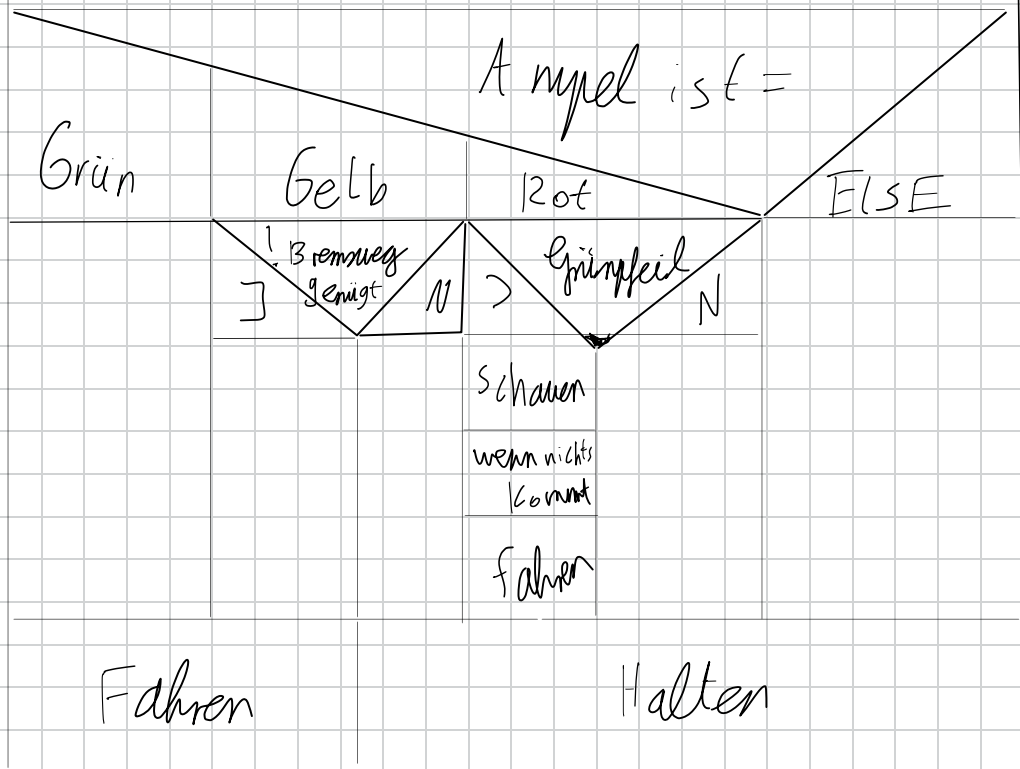 Ampel ist =
Grün
Gelb
Rot
ELSE
! Bremsweg
genügt
J
N
Grünpfeil
J
N
schauen
wenn nichts
kommt
fahren
Fahren
Halten